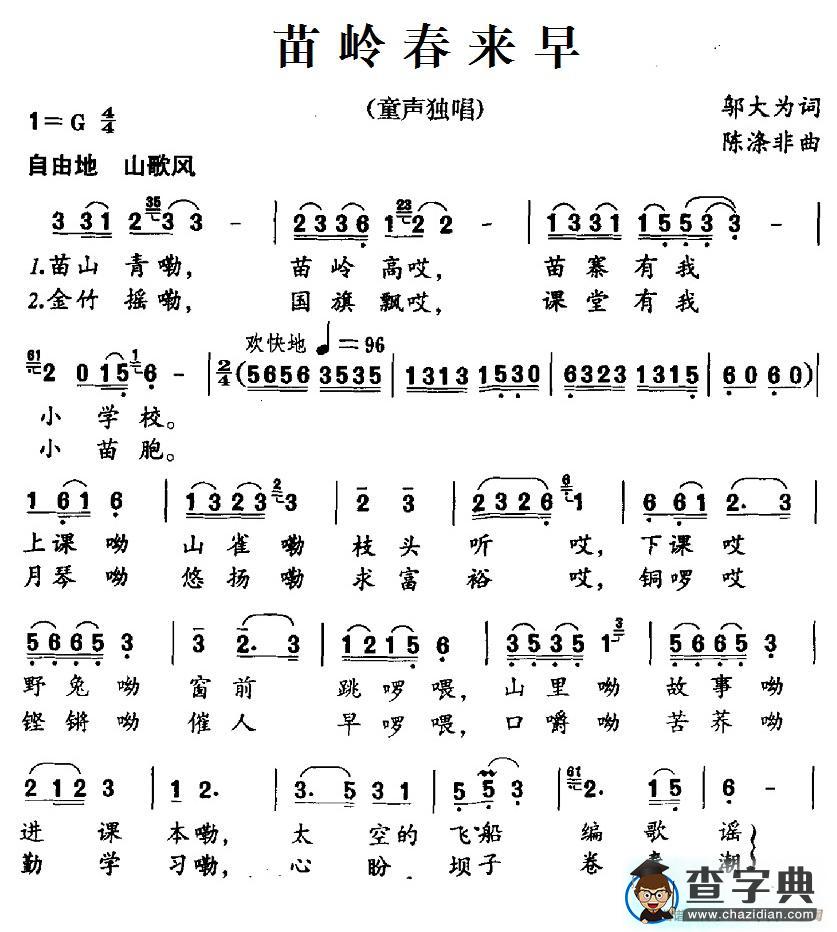 苗岭春来早
(童声独唱)
1=G 4/4
邬大为词
陈涤非曲
自由地 山歌风
3 3 3 1 2 35 3 3 - | 2 3 3 6 1 23 2 2 - | 1 3 3 1 1 5 5 3 3 - |
1.苗山 青嘞, 苗岭 高哎, 苗寨有我
2.金竹 摇嘞, 国旗 飘哎, 课堂有我
欢快地 ♩=96
61 2 0 1 5 1 6 - | 2/4 (5656 3535 | 1313 1530 | 6323 1315 | 6 0 6 0) |
小学校。
小苗胞。
1 6 1 6 | 1 3 2 3 2 3 | 2 3 | 2 3 2 6 6 1 | 6 6 1 2. 3 |
上课呦 山雀嘞 枝头听 哎, 下课哎
月琴呦 悠扬嘞 求富裕 哎, 铜啰哎
5 6 6 5 3 | 3 2. 3 | 1 2 1 5 6 | 3 5 3 5 1 3 | 5 6 6 5 3 |
野兔呦 窗前 跳啰喂, 山里呦 故事呦
铿锵呦 催人 早啰喂, 口嚼呦 苦荞呦
2 1 2 3 | 1 2. | 3. 5 3 1 | 5 5 3 | 61 2. 1 5 | 6 - |
进课本嘞, 太空的飞船 编歌谣
勤学习嘞, 心盼坝子 卷 潮
查字典
www.chazidian.com